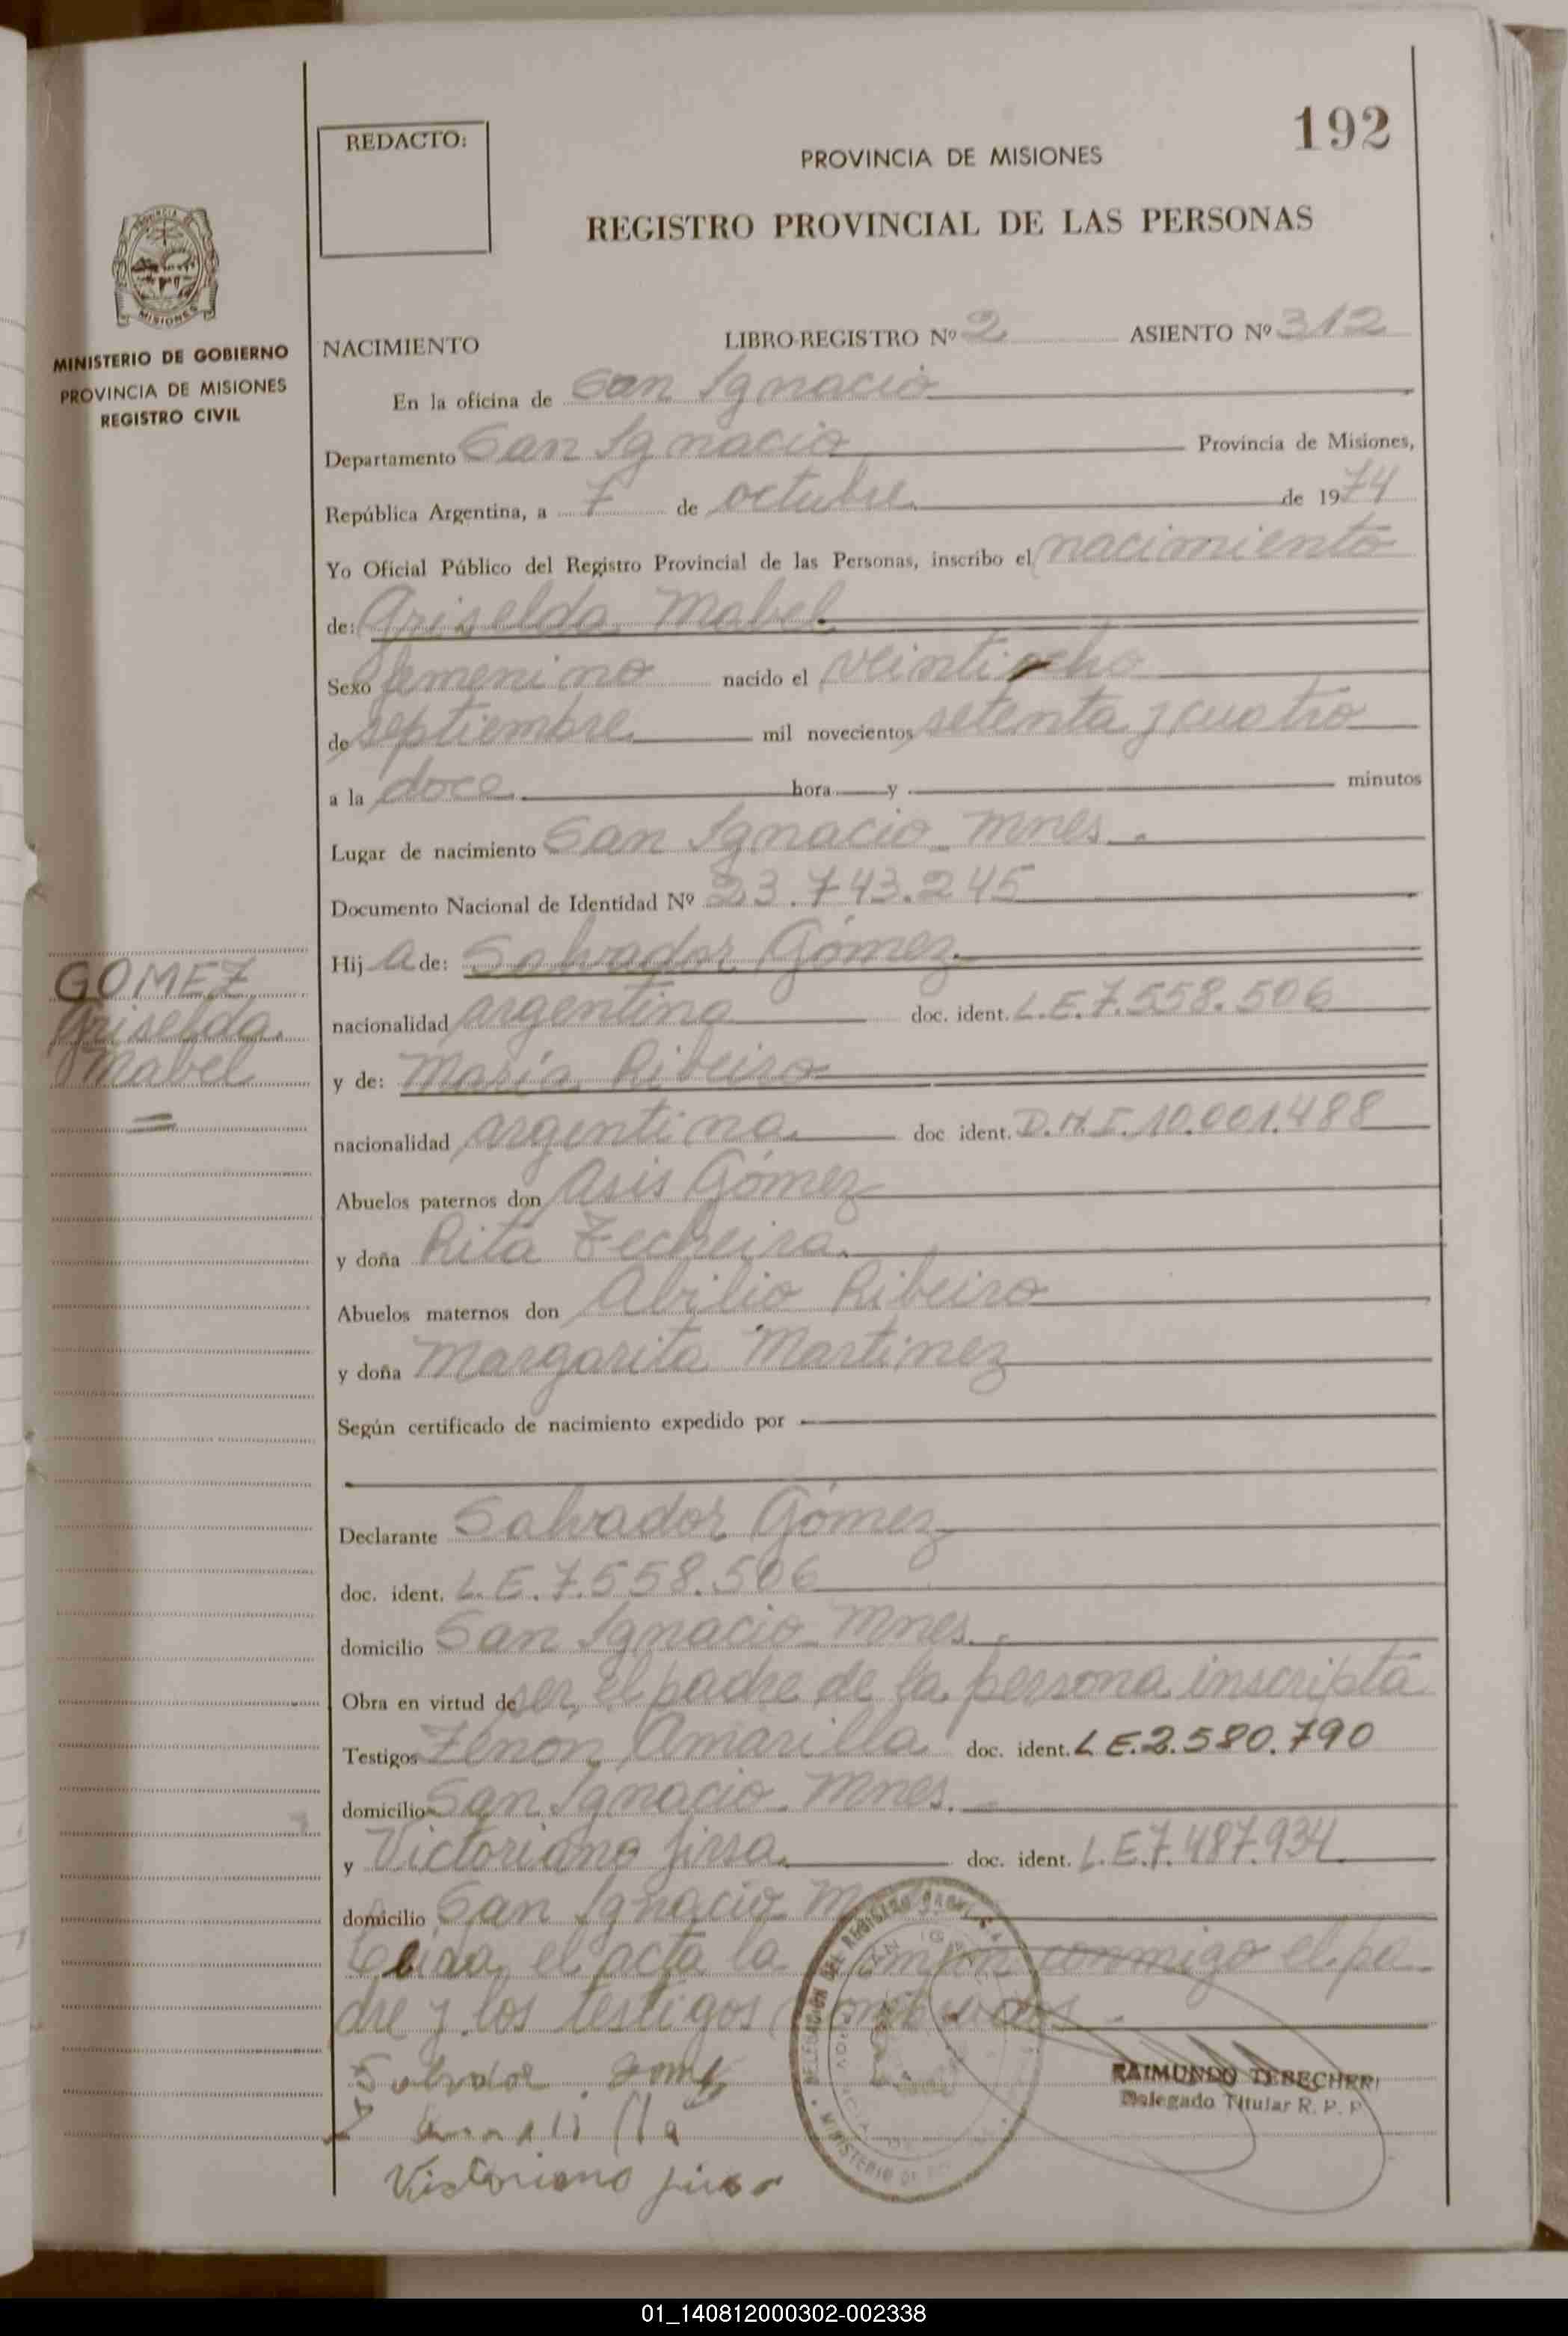 192
REDACTO:
PROVINCIA DE MISIONES
REGISTRO PROVINCIAL DE LAS PERSONAS
MISIONES
MINISTERIO DE GOBIERNO
PROVINCIA DE MISIONES
REGISTRO CIVIL
NACIMIENTO LIBRO-REGISTRO Nº 2 ASIENTO Nº 312
En la oficina de San Ignacio
Departamento San Ignacio Provincia de Misiones,
República Argentina, a 7 de octubre de 1974
Yo Oficial Público del Registro Provincial de las Personas, inscribo el nacimiento
de: Griselda Mabel
Sexo femenino nacido el veintiocho
de septiembre mil novecientos setenta y cuatro
a la doce hora y minutos
Lugar de nacimiento San Ignacio - Mnes.
Documento Nacional de Identidad Nº 23.743.245
Hija de: Salvador Gómez
GOMEZ
Griselda
Mabel
nacionalidad argentina doc. ident. L.E.7.558.506
y de: María Ribeiro
nacionalidad argentina doc ident. D.N.I. 10.001.488
Abuelos paternos don Asis Gómez
y doña Rita Techeira
Abuelos maternos don Abilio Ribeiro
y doña Margarita Martinez
Según certificado de nacimiento expedido por
Declarante Salvador Gómez
doc. ident. L.E.7.558.506
domicilio San Ignacio - Mnes.
Obra en virtud de ser el padre de la persona inscripta
Testigos Zenón Amarilla doc. ident. L E.2.580.790
domicilio San Ignacio - Mnes.
y Victoriano doc. ident. L.E.7.487.934
domicilio San Ignacio
Leida el acta la firman conmigo el pa
dre y los testigos nombrados
Salvador Gomez
Amarilla
Victoriano
RAIMUNDO TEBECHERI
Delegado Titular R. P. P.
01_140812000302-002338